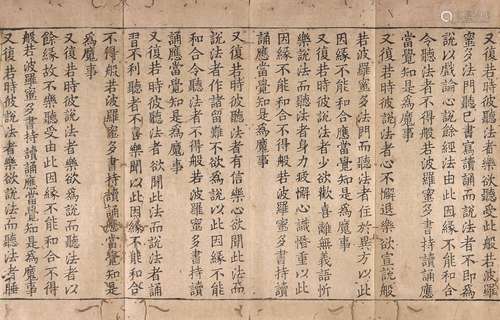 又復若時彼聽法者樂欲受此般若波羅
蜜多法門聽已書寫讀誦而說法者不即爲
說以戲論心說餘經法由此因緣不能和合
令聽法者不得般若波羅蜜多書持讀誦應
當覺知是爲魔事
又復若時彼說法者心不懈退樂欲宣說般
若波羅蜜多法門而聽法者住於異方以此
因緣不能和合應當覺知是爲魔事
又復若時彼說法者少欲歡喜離無義語忻
樂說法而聽法者身力疲懈心識惛重以此
因緣不能和合不得般若波羅蜜多書持讀
誦應當覺知是爲魔事
又復若時彼聽法者有信樂心欲聞此法而
說法者作諸留難不欲爲說以此因緣不能
和合令聽法者不得般若波羅蜜多書持讀
誦應當覺知是爲魔事
又復若時彼聽法者欲聞此法而說法者誦
習不利聽者不喜樂聞以此因緣不能和合
不得般若波羅蜜多書持讀誦應當覺知是
爲魔事
又復若時彼說法者樂欲爲說而聽法者以
餘緣故不樂聽受由此因緣不能和合不得
般若波羅蜜多書持讀誦應當覺知是爲魔事
又復若時彼說法者樂欲說法而聽法者睡